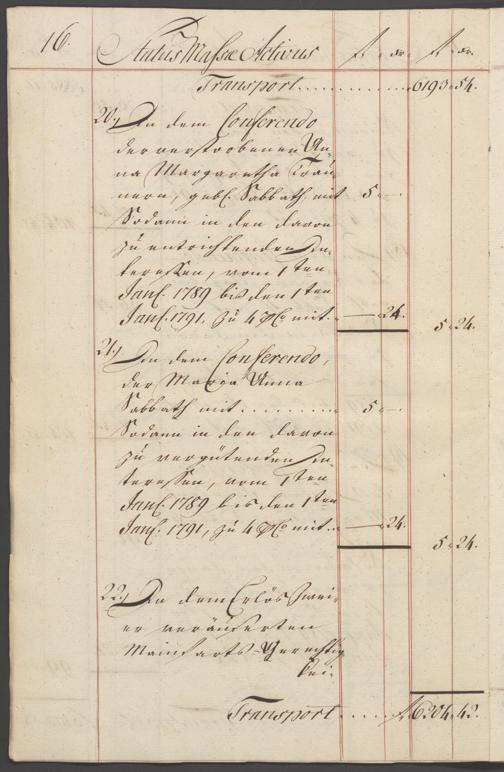 16. Status Massæ Activus f. xr. f. xr.
Transport . . . . . . . . . . . . 6193. 54.
20.) In dem Conferendo
der verstorbenen An-
na Margaretha
nern, gebl. Sabbath, mit 5. -
Sodann in den davon
zu entrichtenden In-
teressen, vom 1ten
Janl. 1789 bis den 1ten
Janl. 1791. zu 4 pCo mit. . — 24. 5. 24.
21.) In dem Conferendo,
der Maria Anna
Sabbath mit . . . . . . . . . . 5. -
Sodann in den davon
zu vergütenden In-
teressen, vom 1ten
Janl. 1789 bis den 1ten
Janl. 1791, zu 4 pCo mit. . — 24. 5. 24.
22.) In dem Erlös zwei-
er veräuserten
Mainfarts-Gerechtig
kei-
Transport . . . . . f. 6204. 42.